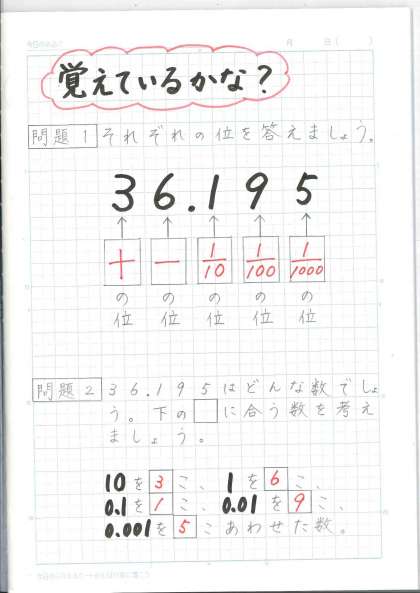 月 日( )
覚えているかな?
問題1 それぞれの位を答えましょう。
36.195
十 一 1/10 1/100 1/1000
の位 の位 の位 の位 の位
問題2 36.195はどんな数でしょ
う。下の□に合う数を考え
ましょう。
10を3こ、 1を6こ、
0.1を1こ、 0.01を9こ、
0.001を5こあわせた数。